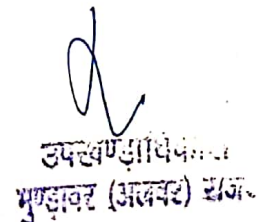 उपखण्डाधिकारी
मुण्डावर (अलवर) राज.